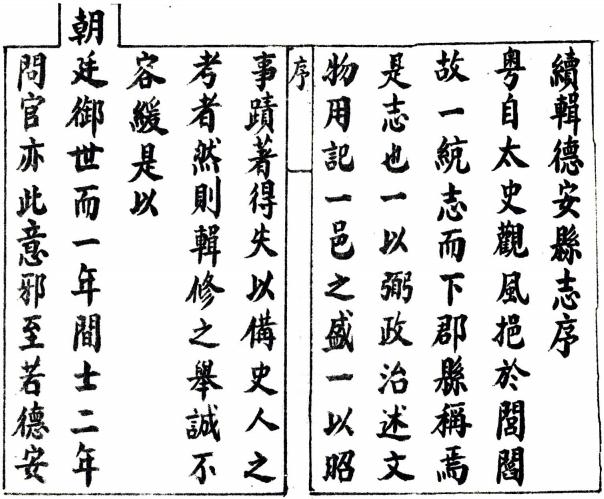 續輯德安縣志序
粤自太史觀風挹於閭閻
故一統志而下郡縣稱焉
是志也一以弼政治述文
物用記一邑之盛一以昭
序
事蹟著得失以備史人之
考者然則輯修之舉誠不
容緩是以
朝廷御世而一年間士二年
問官亦此意邪至若德安